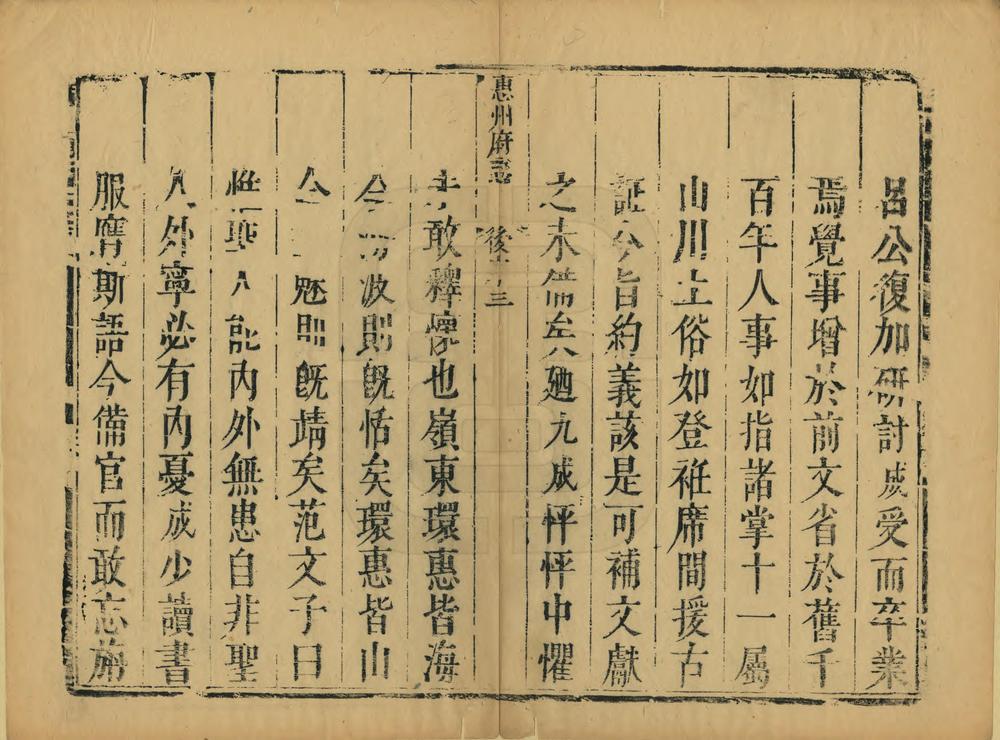 呂公復加研討成受而卒業
焉覺事增於前文省於舊千
百年人事如指諸掌十一屬
山川土俗如登袵席間援古
証今旨約義該是可補文獻
之未備矣廼九成怦怦中懼
惠州府志 後 三
未敢釋懷也嶺東環惠皆海
今 波則既恬矣環惠皆山
今 魅則既靖矣范文子曰
惟聖人能內外無患自非聖
人外寧必有內憂成少讀書
服膺斯語今備官而敢忘旃